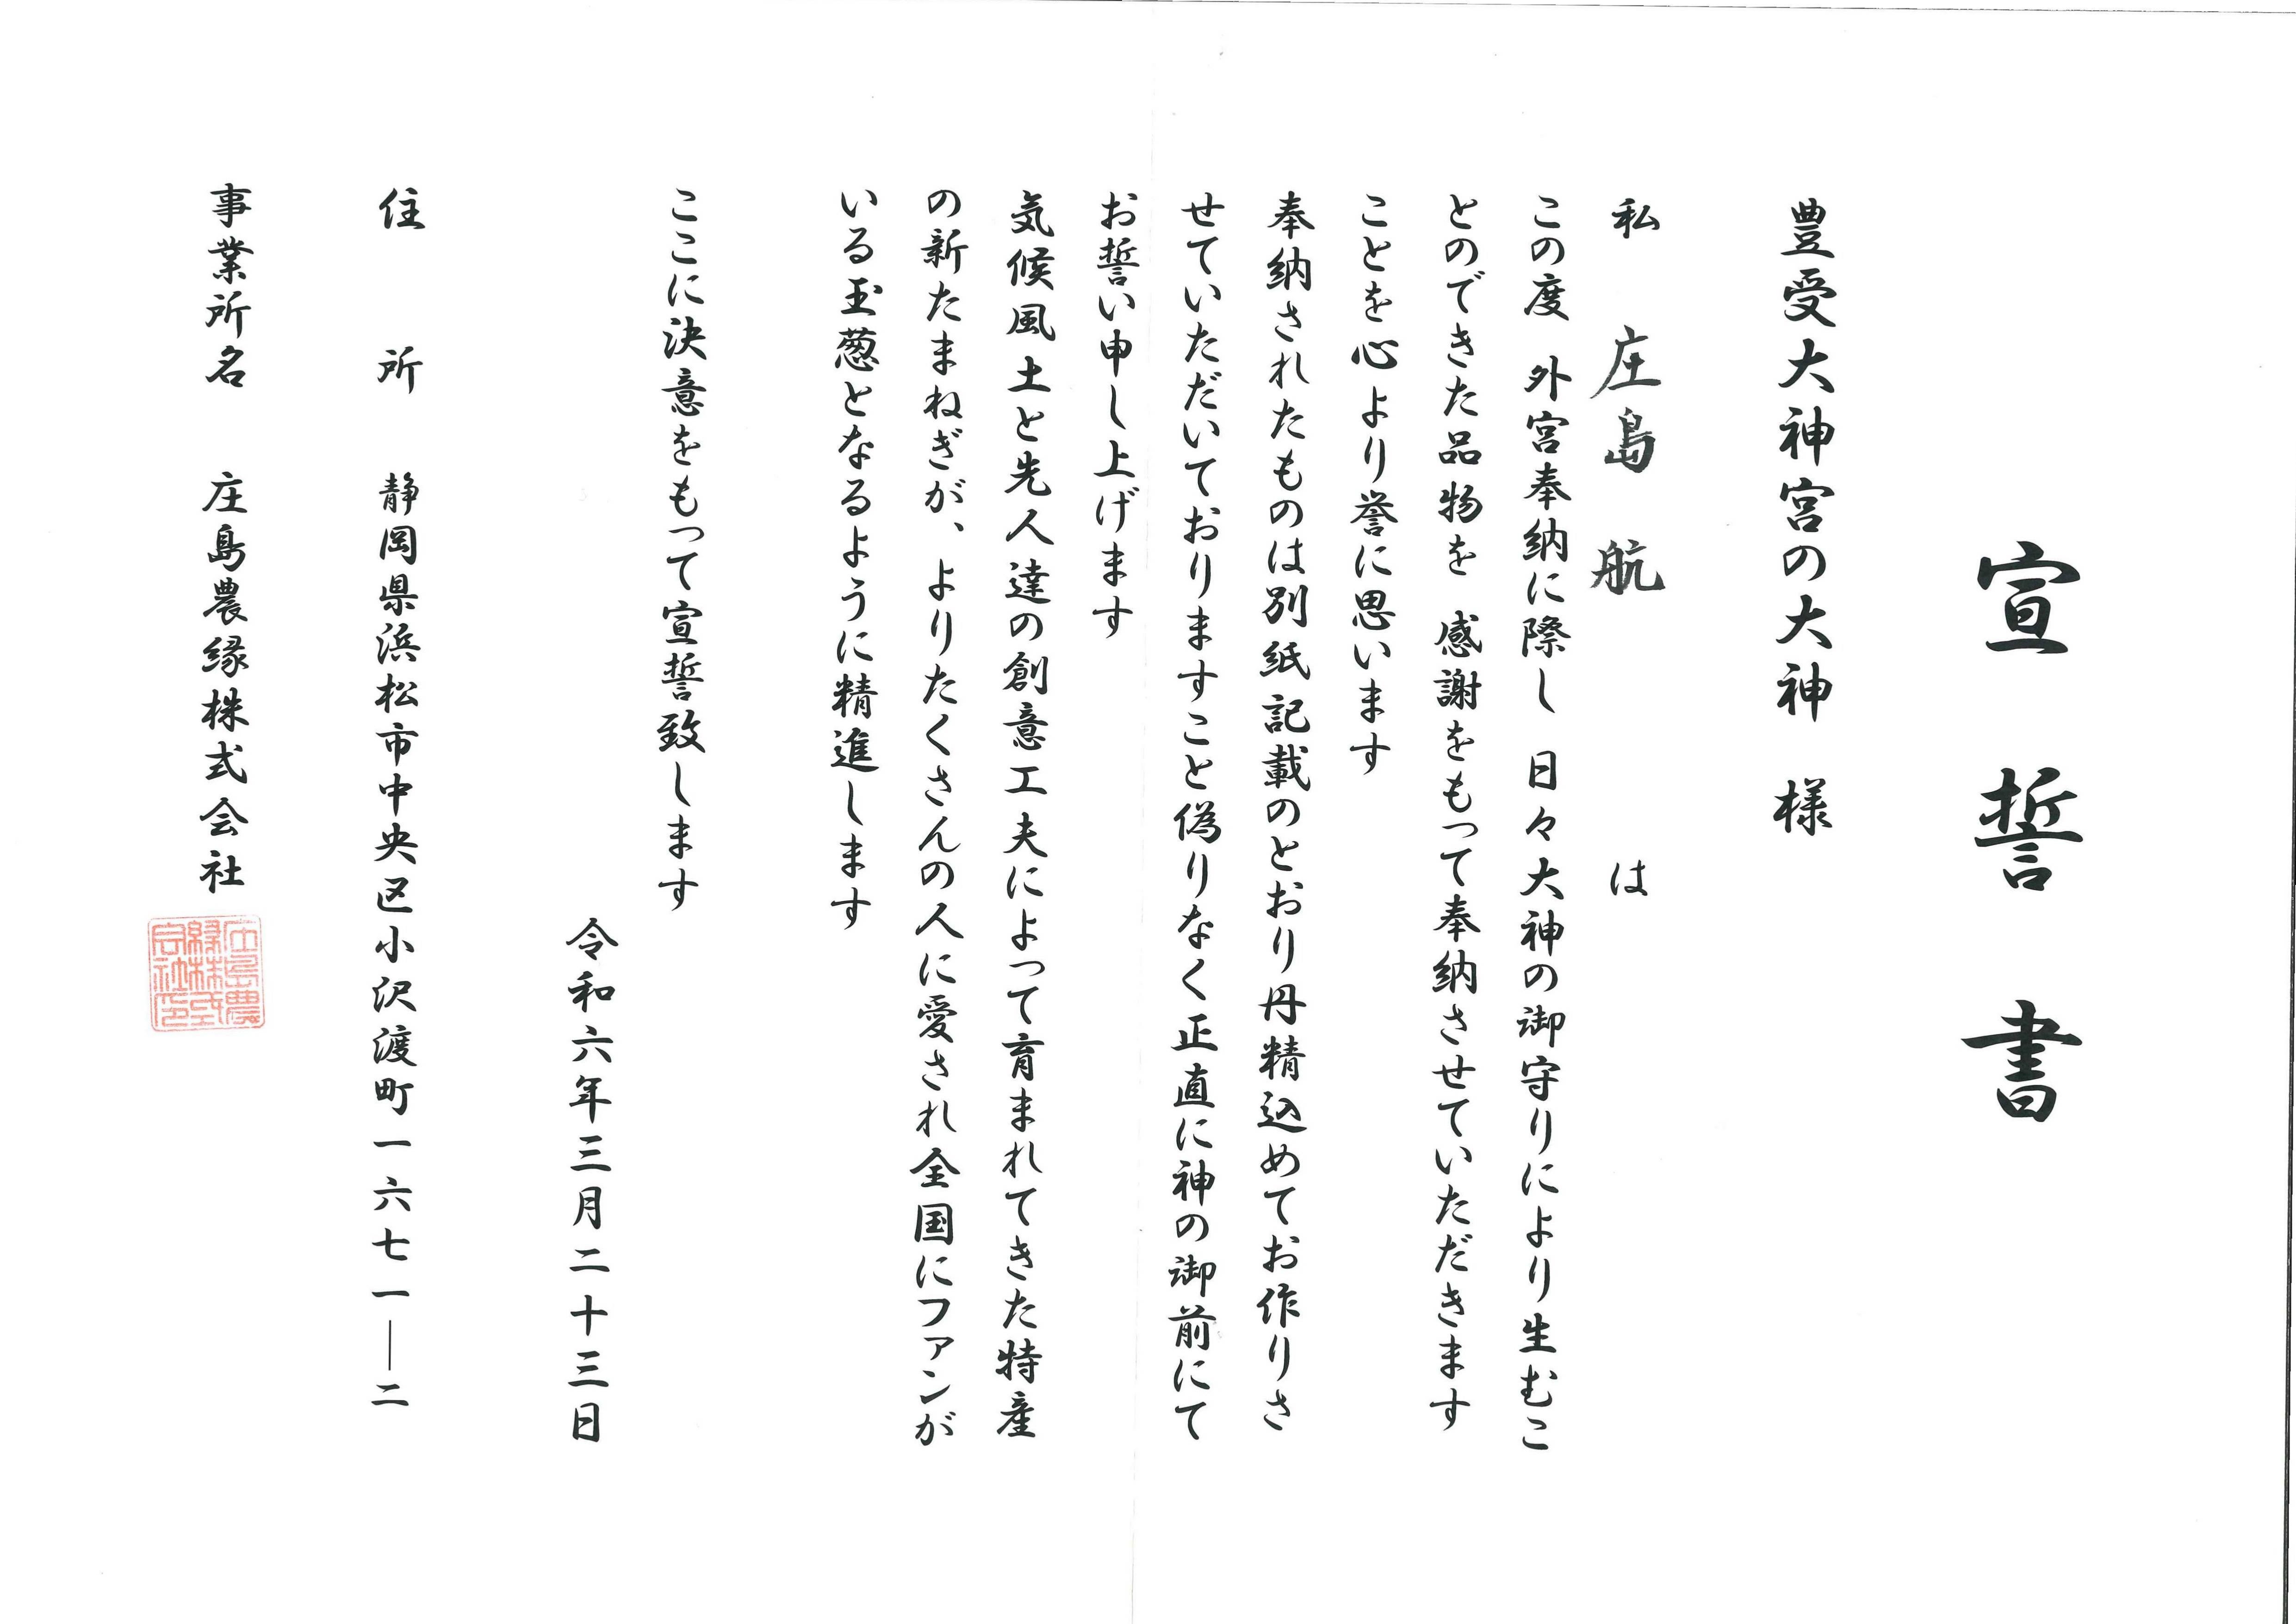 宣誓書
豊受大神宮の大神　様
私　庄島　航　は
この度　外宮奉納に際し　日々大神の御守りにより生むこ
とのできた品物を　感謝をもって奉納させていただきます
ことを心より誉に思います
奉納されたものは別紙記載のとおり丹精込めてお作りさ
せていただいておりますこと偽りなく正直に神の御前にて
お誓い申し上げます
気候風土と先人達の創意工夫によって育まれてきた特産
の新たまねぎが、よりたくさんの人に愛され全国にファンが
いる玉葱となるように精進します
ここに決意をもって宣誓致します
令和六年三月二十三日
住　所　静岡県浜松市中央区小沢渡町一六七一―二
事業所名　庄島農縁株式会社
庄島農
縁株式
会社印